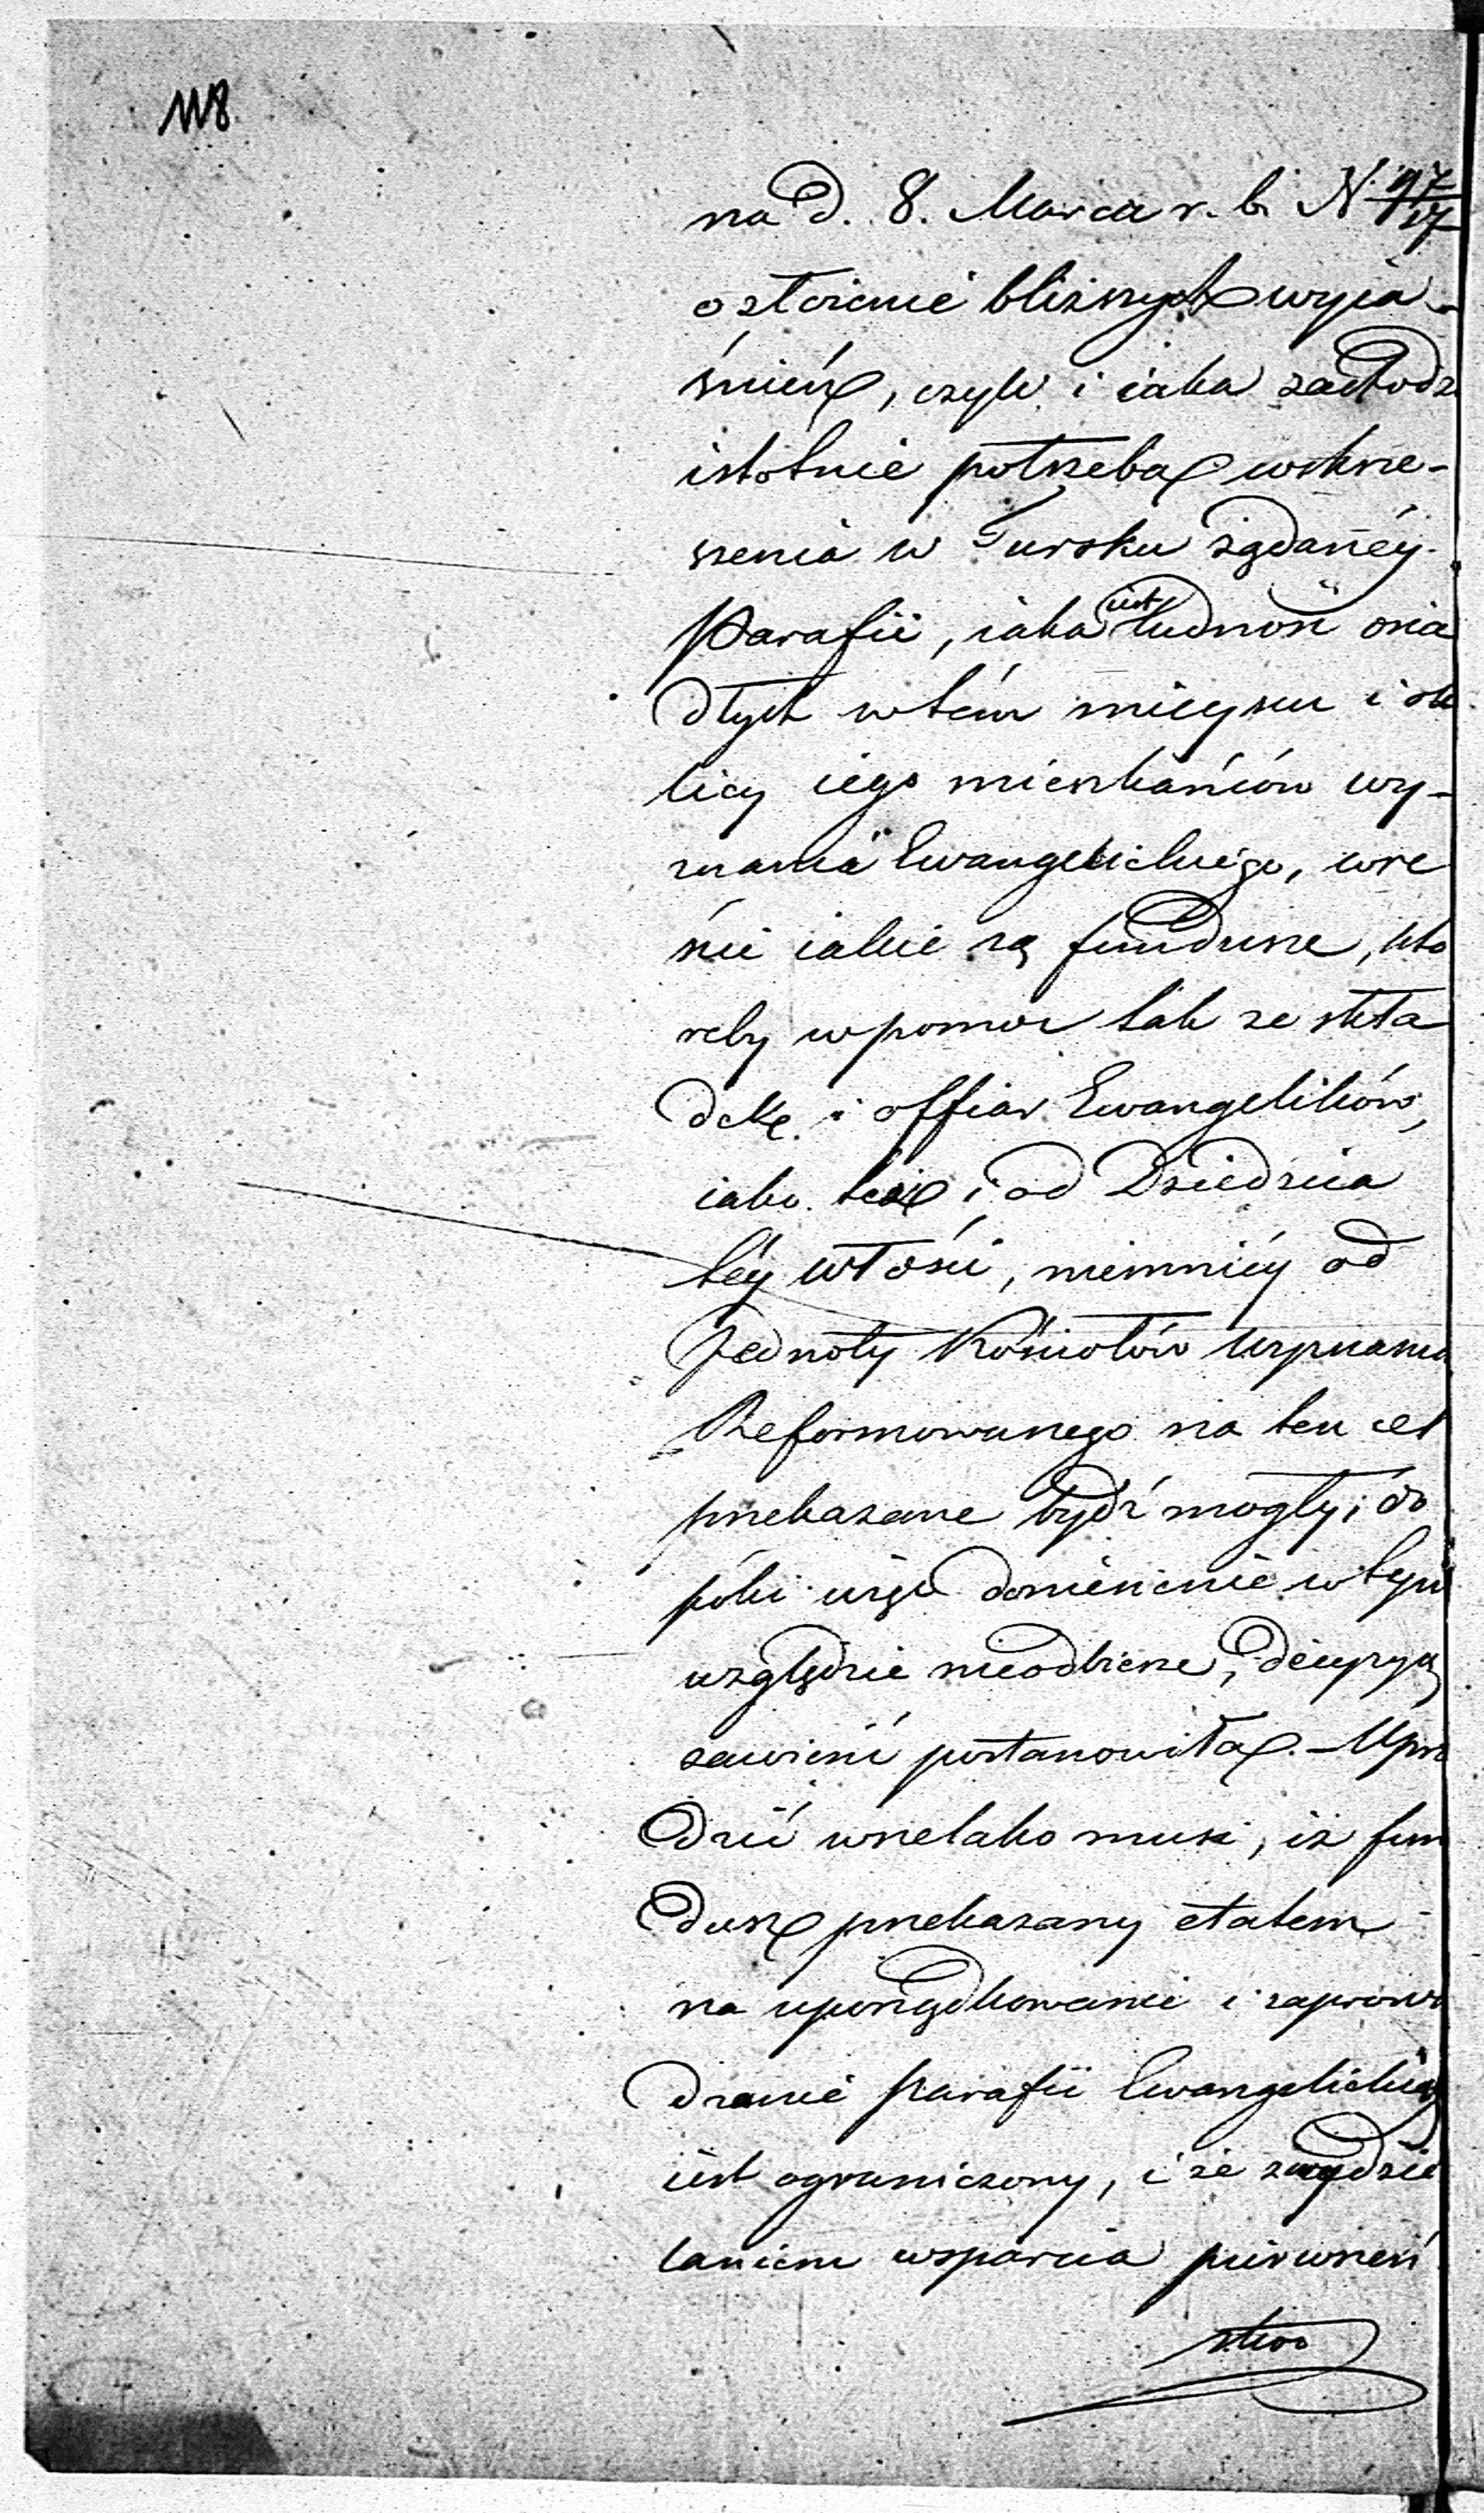 118
na d. 8. Marca r. b. N. 97/17
o złoienie bliższych wyia-
śnień, czyli i iaka zachodzi
istotnie potrzeba wskrze-
szenia w Tursku zgdańéy
Parafii, iaka iest ludność osia
dłych w tém mieyscu i oko
licy iego mieszkańców wy-
znania Ewangelickiego, wre
ście iakie są fundusze, któ
reby w pomoc tak ze skła
dek i offiar Ewangelików,
iako też i od Dziedzica
téy włości, niemniéy od
Jednoty Kościołów Wyznania
Reformowanego na ten cel
przekazane bydź mogły; do
póki więc doniesienie w tym
względzie nieodbierze, decyzyą
zawiesić postanowiła. – Uprze
dzić wszelako musi, iż fun
dusz przekazany etatem
na uporządkowanie i zaprowa
dzenie Parafii Ewangelickiéy
iest ograniczony, i że z wydzie
laniem wsparcia pierwszeń
stwo